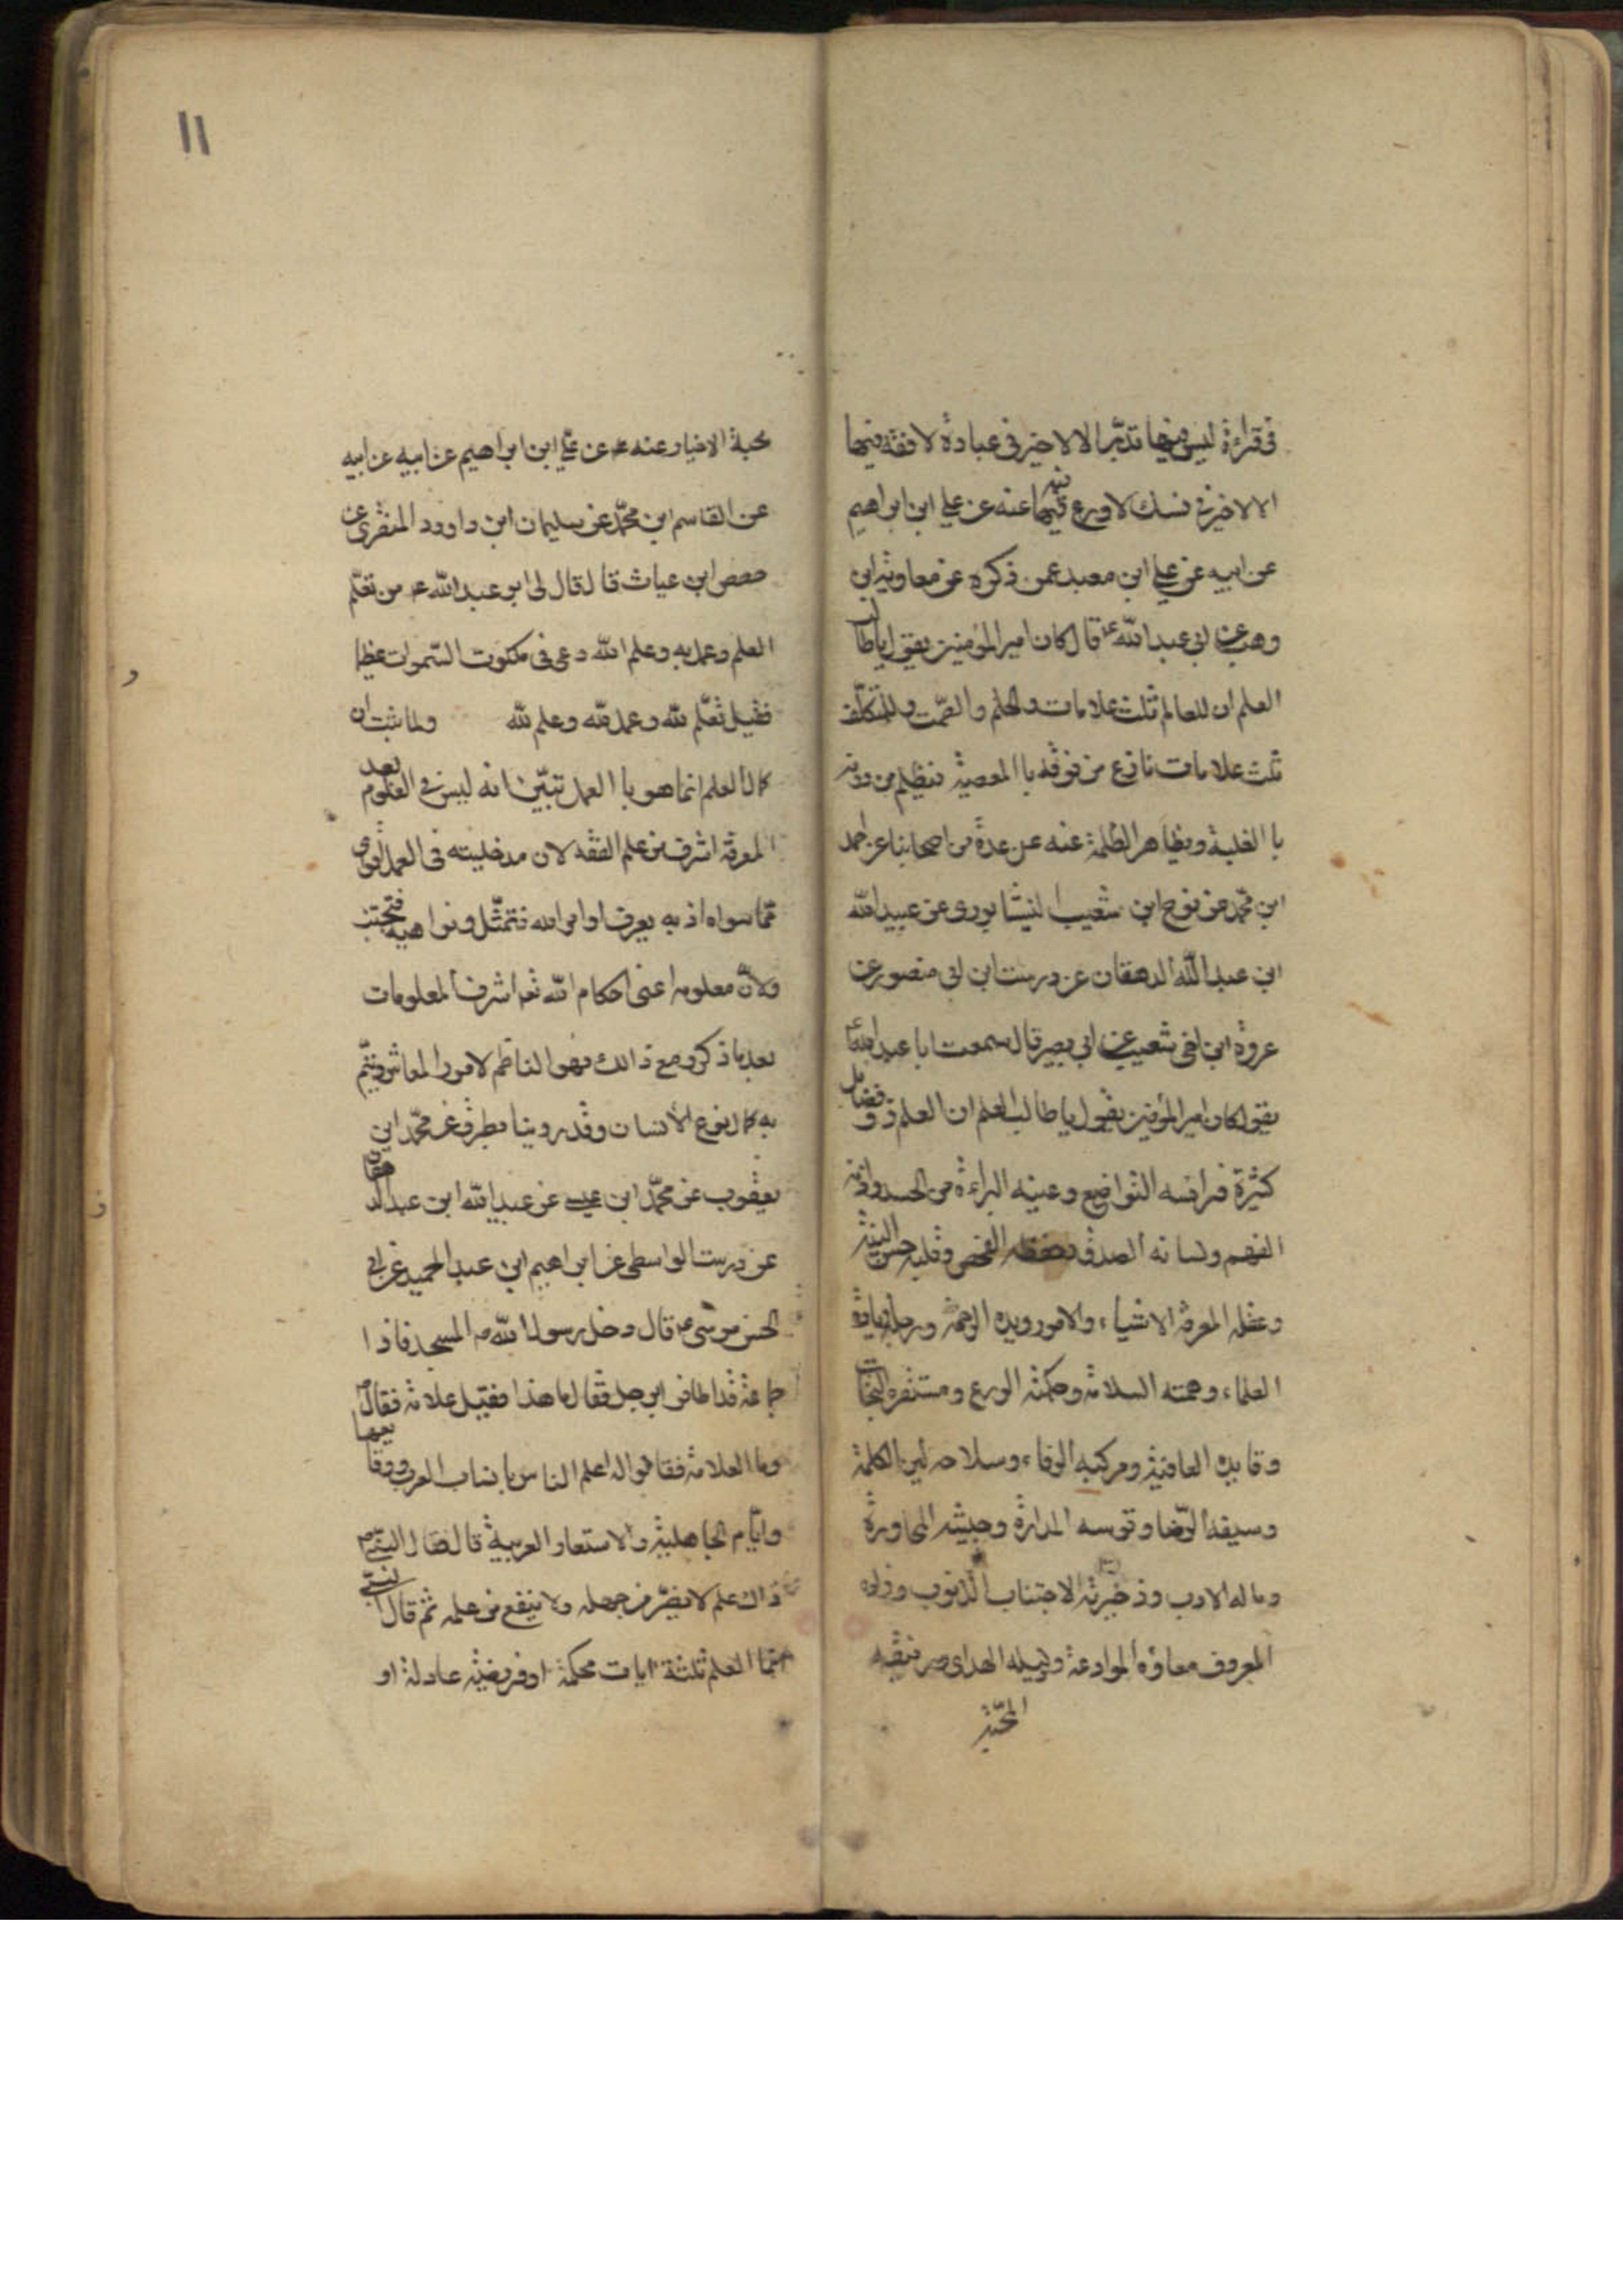 فى قراءة ليس فيها تدبر الا لا خير فى عبادة لا فقه فيها
الا لا خير فى نسك لا ورع فيه عنه عن على ابن ابراهيم
عن ابيه عن على ابن معبد عمن ذكره عن معاوية ابن
وهب عن ابى عبد الله ع قال كان امير المؤمنين يقول يا طالب
العلم ان للعالم ثلث علامات والحلم والصّمت وللمتكلّف
ثلث علامات نازع من فوقه با المعصية يظلم من دونه
با الغلبة ويظاهر الظلمة عنه عن عدة من اصحابنا عن احمد
ابن محمّد عن نوح ابن شعيب النيشابورى عن عبيد الله
ابن عبد الله الدهقان عن درست ابن ابى منصور عن
عروة ابن اخى شعيب عن ابى بصير قال سمعت ابا عبد الله ع
يقول كان امير المؤمنين يقول يا طالب العلم ان العلم ذو فضايل
كثيرة فراسه التواضع وعينه البراءة من الحسد واذنه
الفهم ولسانه الصدق وحفظه الفحص وقلبه حسن النية
وعقله المعرفة الاشياء والامور ويده الرحمة ورجله زيادة
العلماء وهمته السلامة وحكمته الورع ومستقره النجات
وقايده العافية ومركبه الوفاء وسلاحه لين الكلمة
وسيفه الرّضا وقوسه المدارة وجيشه المحاورة
وماله الادب وذخيرته الاجتناب الذنوب وزاده
المعروف معاوه الموادعة ودليله الهداى ورفيقه
المحبّة
11
محبة الاخيار عنه ره عن علىّ ابن ابراهيم عن ابيه عن ابيه
عن القاسم ابن محمّد عن سليمان ابن داوود المنقرى عن
حفص ابن غياث قال قال لى ابو عبد الله ع من تعلّم
العلم وعمل به وعلم الله دعى فى ملكوت السّموات عظيما
فقيل تعلّم لله وعمل لله وعلم لله ولما ثبت ان
كمال العلم انما هو با العمل تبيّن انه ليس فى العلوم بعد
المعرفة اشرف من علم الفقه لان مدخليته فى العمل اقوى
ممّا سواه اذ به يعرف اوامر الله فتمتثّل ونواهيه فتجتنب
ولانّ معلومه اعنى احكام الله تعم اشرف المعلومات
بعد ما ذكر ومع ذالك فهو الناظم لامور المعاش ويتمّ
به كمال نوع الانسان وقد روينا بطرقه عن محمّد ابن
يعقوب عن محمّد ابن عن عبد الله ابن عبد الدهقان
عن درست الواسطى عن ابراهيم ابن عبد الحميد عن ابى
الحسن موسى ع قال دخل رسول الله ص المسجد فاذا
جماعة قد اطافوا برجل فقال ما هذا فقيل علامة فقال
وما العلامة فقالوا له اعلم الناس بانساب العرب ووقايعها
وايّام الجاهلية والاستعار العربية قال فقال النبىّ ص
ذاك علم لا يضرّ من جهله ولا ينفع من علمه ثم قال النبىّ
انّما العلم ثلثة ايات محكمة او فريضة عادلة او